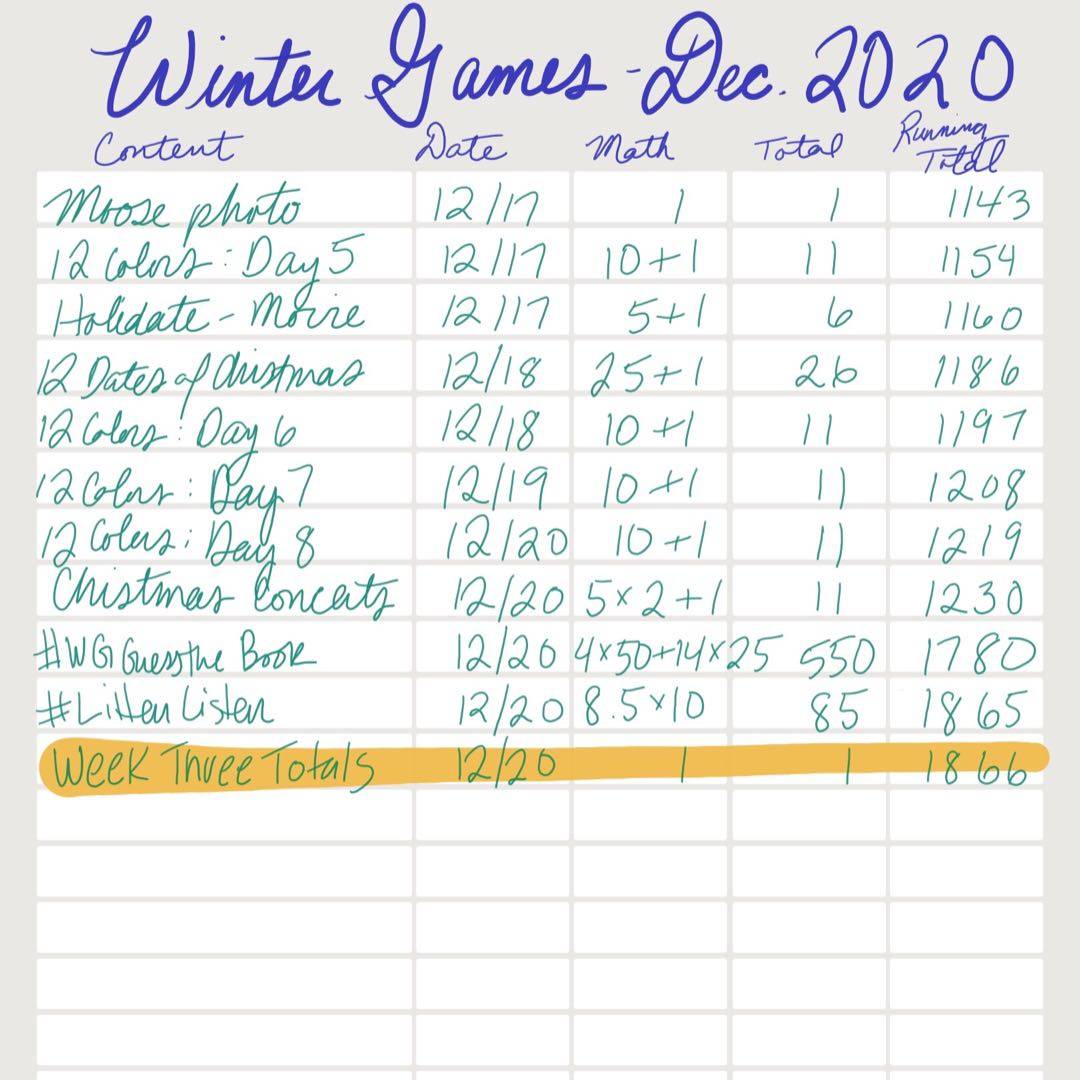 Winter Games - Dec. 2020
Content Date Math Total Running Total
Moose photo 12/17 1 1 1143
12 Colors: Day 5 12/17 10+1 11 1154
Holidate - Movie 12/17 5+1 6 1160
12 Dates of Christmas 12/18 25+1 26 1186
12 Colors: Day 6 12/18 10+1 11 1197
12 Colors: Day 7 12/19 10+1 11 1208
12 Colors: Day 8 12/20 10+1 11 1219
Christmas Concerts 12/20 5x2+1 11 1230
#WG Guess the Book 12/20 4x50+14x25 550 1780
#Litten Listen 12/20 8.5x10 85 1865
Week Three Totals 12/20 1 1 1866